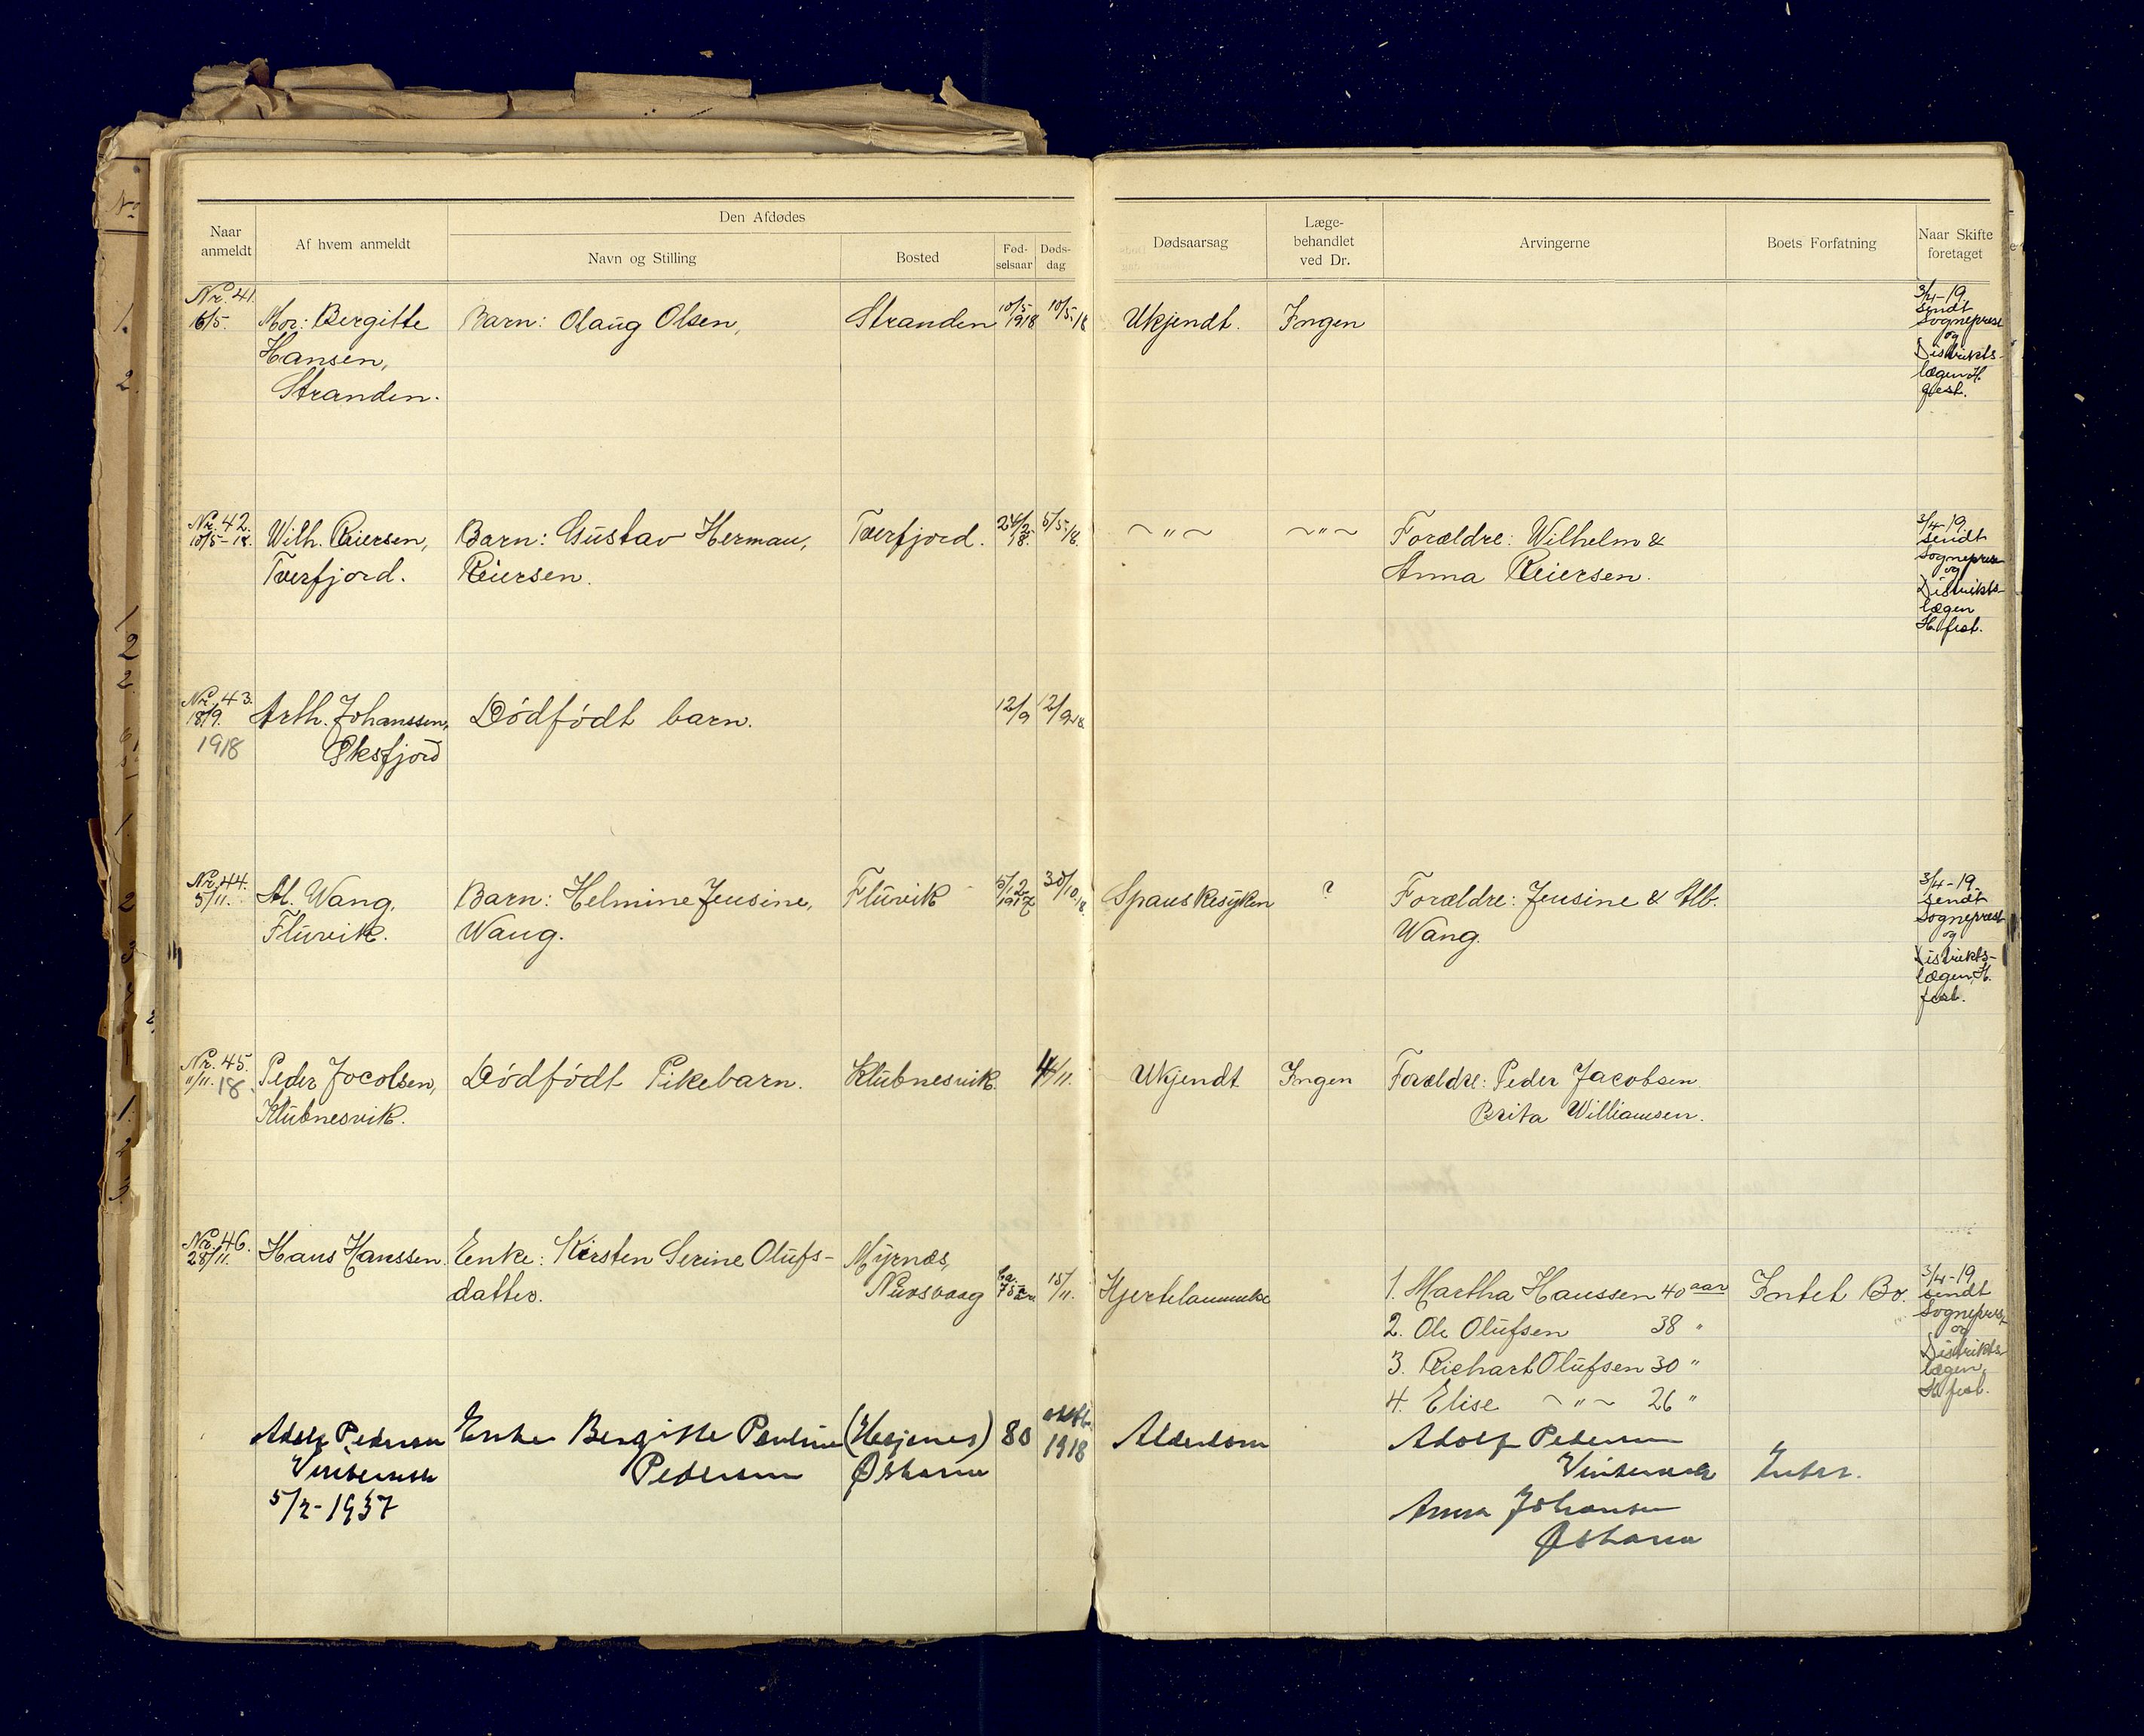 Naar anmeldt
Af hvem anmeldt
Den Afdødes
Navn og Stilling
Bosted
Fød-selsaar
Døds-dag
Dødsaarsag
Læge-behandlet ved Dr.
Arvingerne
Boets Forfatning
Naar Skifte foretaget
Nr. 41.
16/5.
Mor: Bergitte
Hansen,
Stranden.
Barn: Olaug Olsen,
Stranden
10/5 1918
10/5-18
Ukjendt.
Ingen
3/4-19.
sendt
Sogneprest
og
Distrikts-
lægen H.
fest.
Nr. 42.
10/5-18.
Wilh. Reiersen,
Tverfjord.
Barn: Gustav Herman,
Reiersen.
Tverfjord.
5/5-18.
~ " ~
~ " ~
Forældre: Wilhelm &
Anna Reiersen.
3/4-19.
sendt
Sogneprest
og
Distrikts-
lægen
H. fest.
Nr. 43.
18/9.
1918
Arth. Johanssen,
Øksfjord
Dødfødt barn.
12/9
12/9 18.
Nr. 44.
5/11.
Al. Wang,
Fluvik.
Barn: Helmine Jensine,
Wang.
Fluvik
5/12 1917
30/10 18.
Spanskesyken
?
Forældre: Jensine & Alb.
Wang.
3/4-19.
sendt
Sogneprest
og
Distrikts-
lægen, H.
fest.
Nr. 45.
11/11. 18
Peder Jocobsen,
Klubnesvik.
Dødfødt Pikebarn.
Klubnesvik.
4/11.
Ukjendt
Ingen
Forældre: Peder Jacobsen
Brita Williamsen.
Nr. 46.
28/11.
Hans Hanssen.
Enke: Kirsten Serine Olufs-
datter.
Myrnes,
Nuvsvaag
ca. 75 aar.
15/11.
Hjertelammelse
1. Martha Hanssen 40 aar
2. Ole Olufsen 38 "
3. Richart Olufsen 30 "
4. Elise ~ " ~ 26 "
Intet Bo.
3/4-19
sendt
Sogneprest
og
Distrikts-
lægen,
H. fest.
Adolf Pedersen
Vintervik
5/2-1937
Enke Bergitte Pauline
Pedersen
(Hesjenes)
Øskarn
80
oktbr.
1918
Alderdom
Adolf Pedersen
Vintervik
Anna Johansen
Øskarn
Intet.